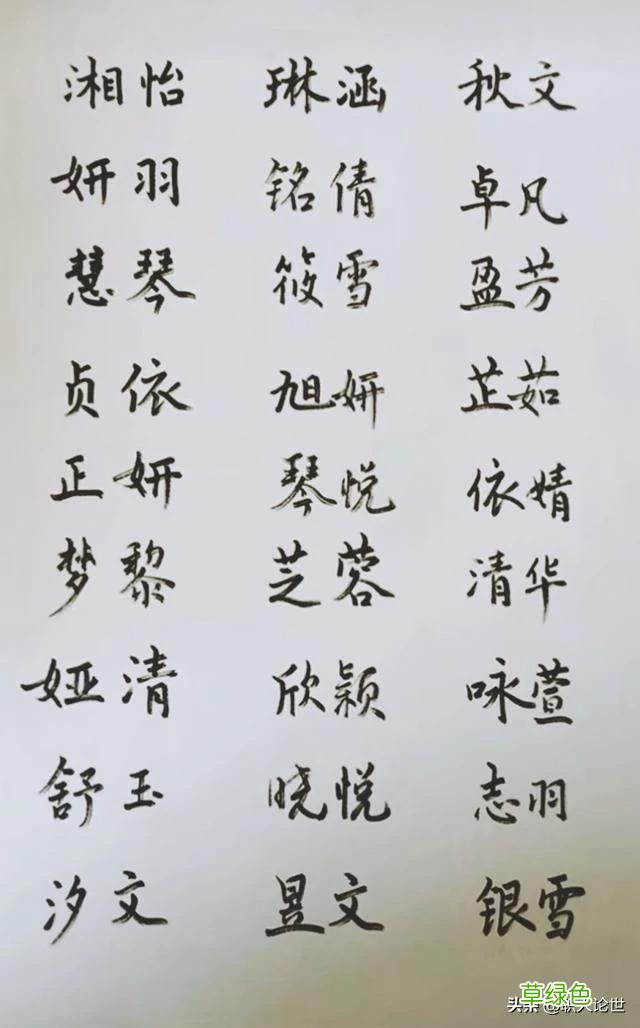 湘怡 琳涵 秋文
妍羽 铭倩 卓凡
慧琴 筱雪 盈芳
贞依 旭妍 芷茹
正妍 琴悦 依婧
梦黎 芝蓉 清华
娅清 欣颖 咏萱
舒玉 晓悦 志羽
汐文 昱文 银雪
草绿色
头条 论世